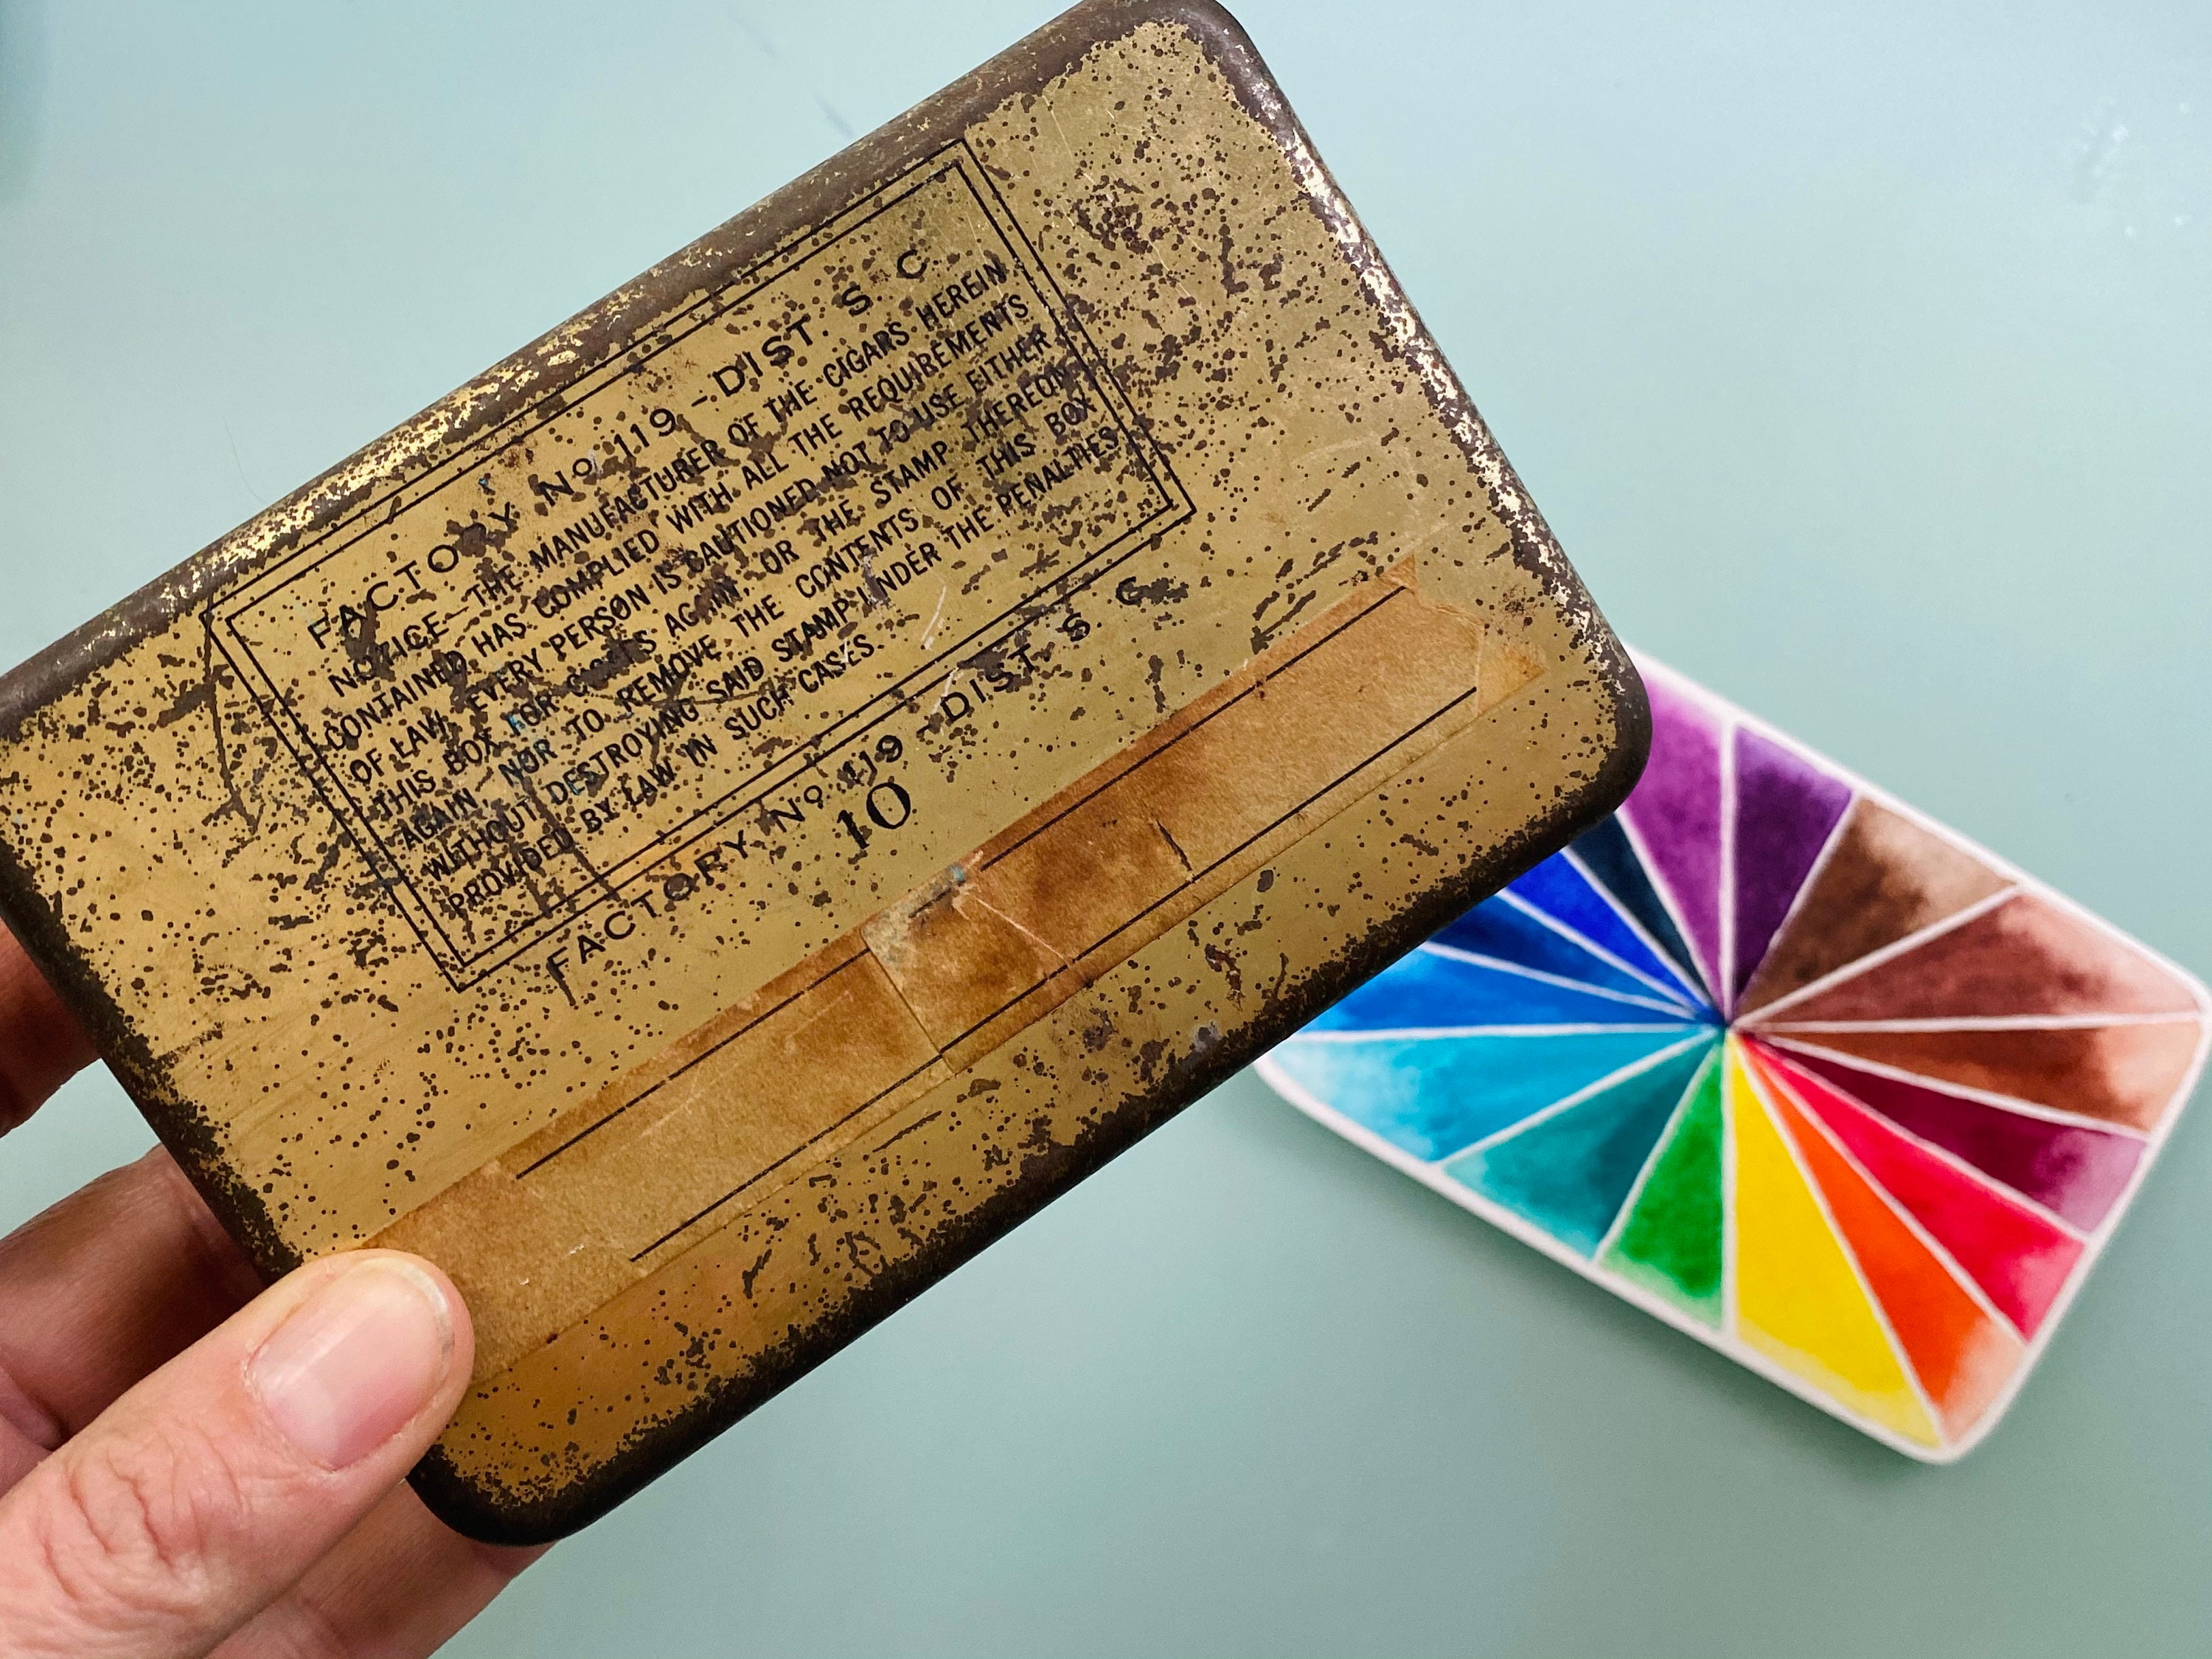 FACTORY Nº 119 - DIST. S. C
NOTICE-THE MANUFACTURER OF THE CIGARS HEREIN
CONTAINED HAS COMPLIED WITH ALL THE REQUIREMENTS
OF LAW. EVERY PERSON IS CAUTIONED NOT TO USE EITHER
THIS BOX FOR CIGARS AGAIN, OR THE STAMP THEREON
AGAIN, NOR TO REMOVE THE CONTENTS OF THIS BOX
WITHOUT DESTROYING SAID STAMP UNDER THE PENALTIES
PROVIDED BY LAW IN SUCH CASES.
FACTORY Nº 119 - DIST. S C
10